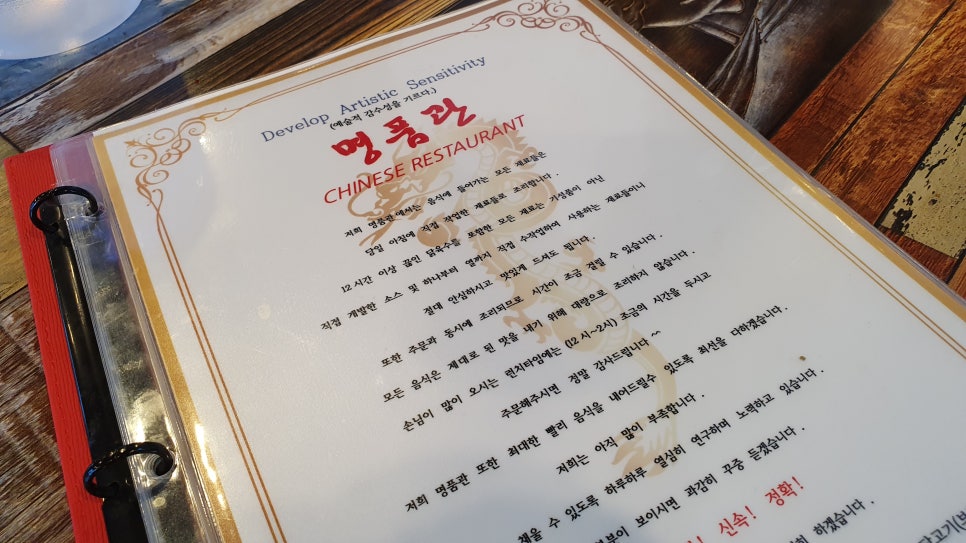 Develop Artistic Sensitivity
(예술적 감수성을 기르다.)
명품관
CHINESE RESTAURANT
저희 명품관에서는 음식에 들어가는 모든 재료들은
당일 아침에 직접 작업한 재료들로 조리합니다.
12시간 이상 끓인 닭육수를 포함한 모든 재료는 기성품이 아닌
직접 개발한 소스 및 하나부터 열까지 직접 수작업하여 사용하는 재료들이니
절대 안심하시고 맛있게 드셔도 됩니다.
또한 주문과 동시에 조리되므로 시간이 조금 걸릴 수 있습니다.
모든 음식은 제대로 된 맛을 내기 위해 대량으로 조리하지 않습니다.
손님이 많이 오시는 런치타임에는 (12시~2시) 조금의 시간을 두시고
주문해주시면 정말 감사드립니다 ^^
저희 명품관 또한 최대한 빨리 음식을 내어드릴수 있도록 최선을 다하겠습니다.
저희는 아직 많이 부족합니다.
채울 수 있도록 하루하루 열심히 연구하며 노력하고 있습니다.
보이시면 과감히 꾸중 듣겠습니다.
신속! 정확!
하겠습니다.